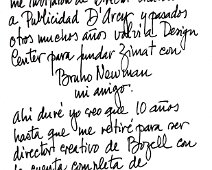 a Publicidad D'Arcy y pasados
otros muchos años volví a Design
Center para fundar Zimat con
Bruno Newman
mi amigo.
Ahí duré yo creo que 10 años
hasta que me retiré para ser
director creativo de Bozell con
la cuenta completa de